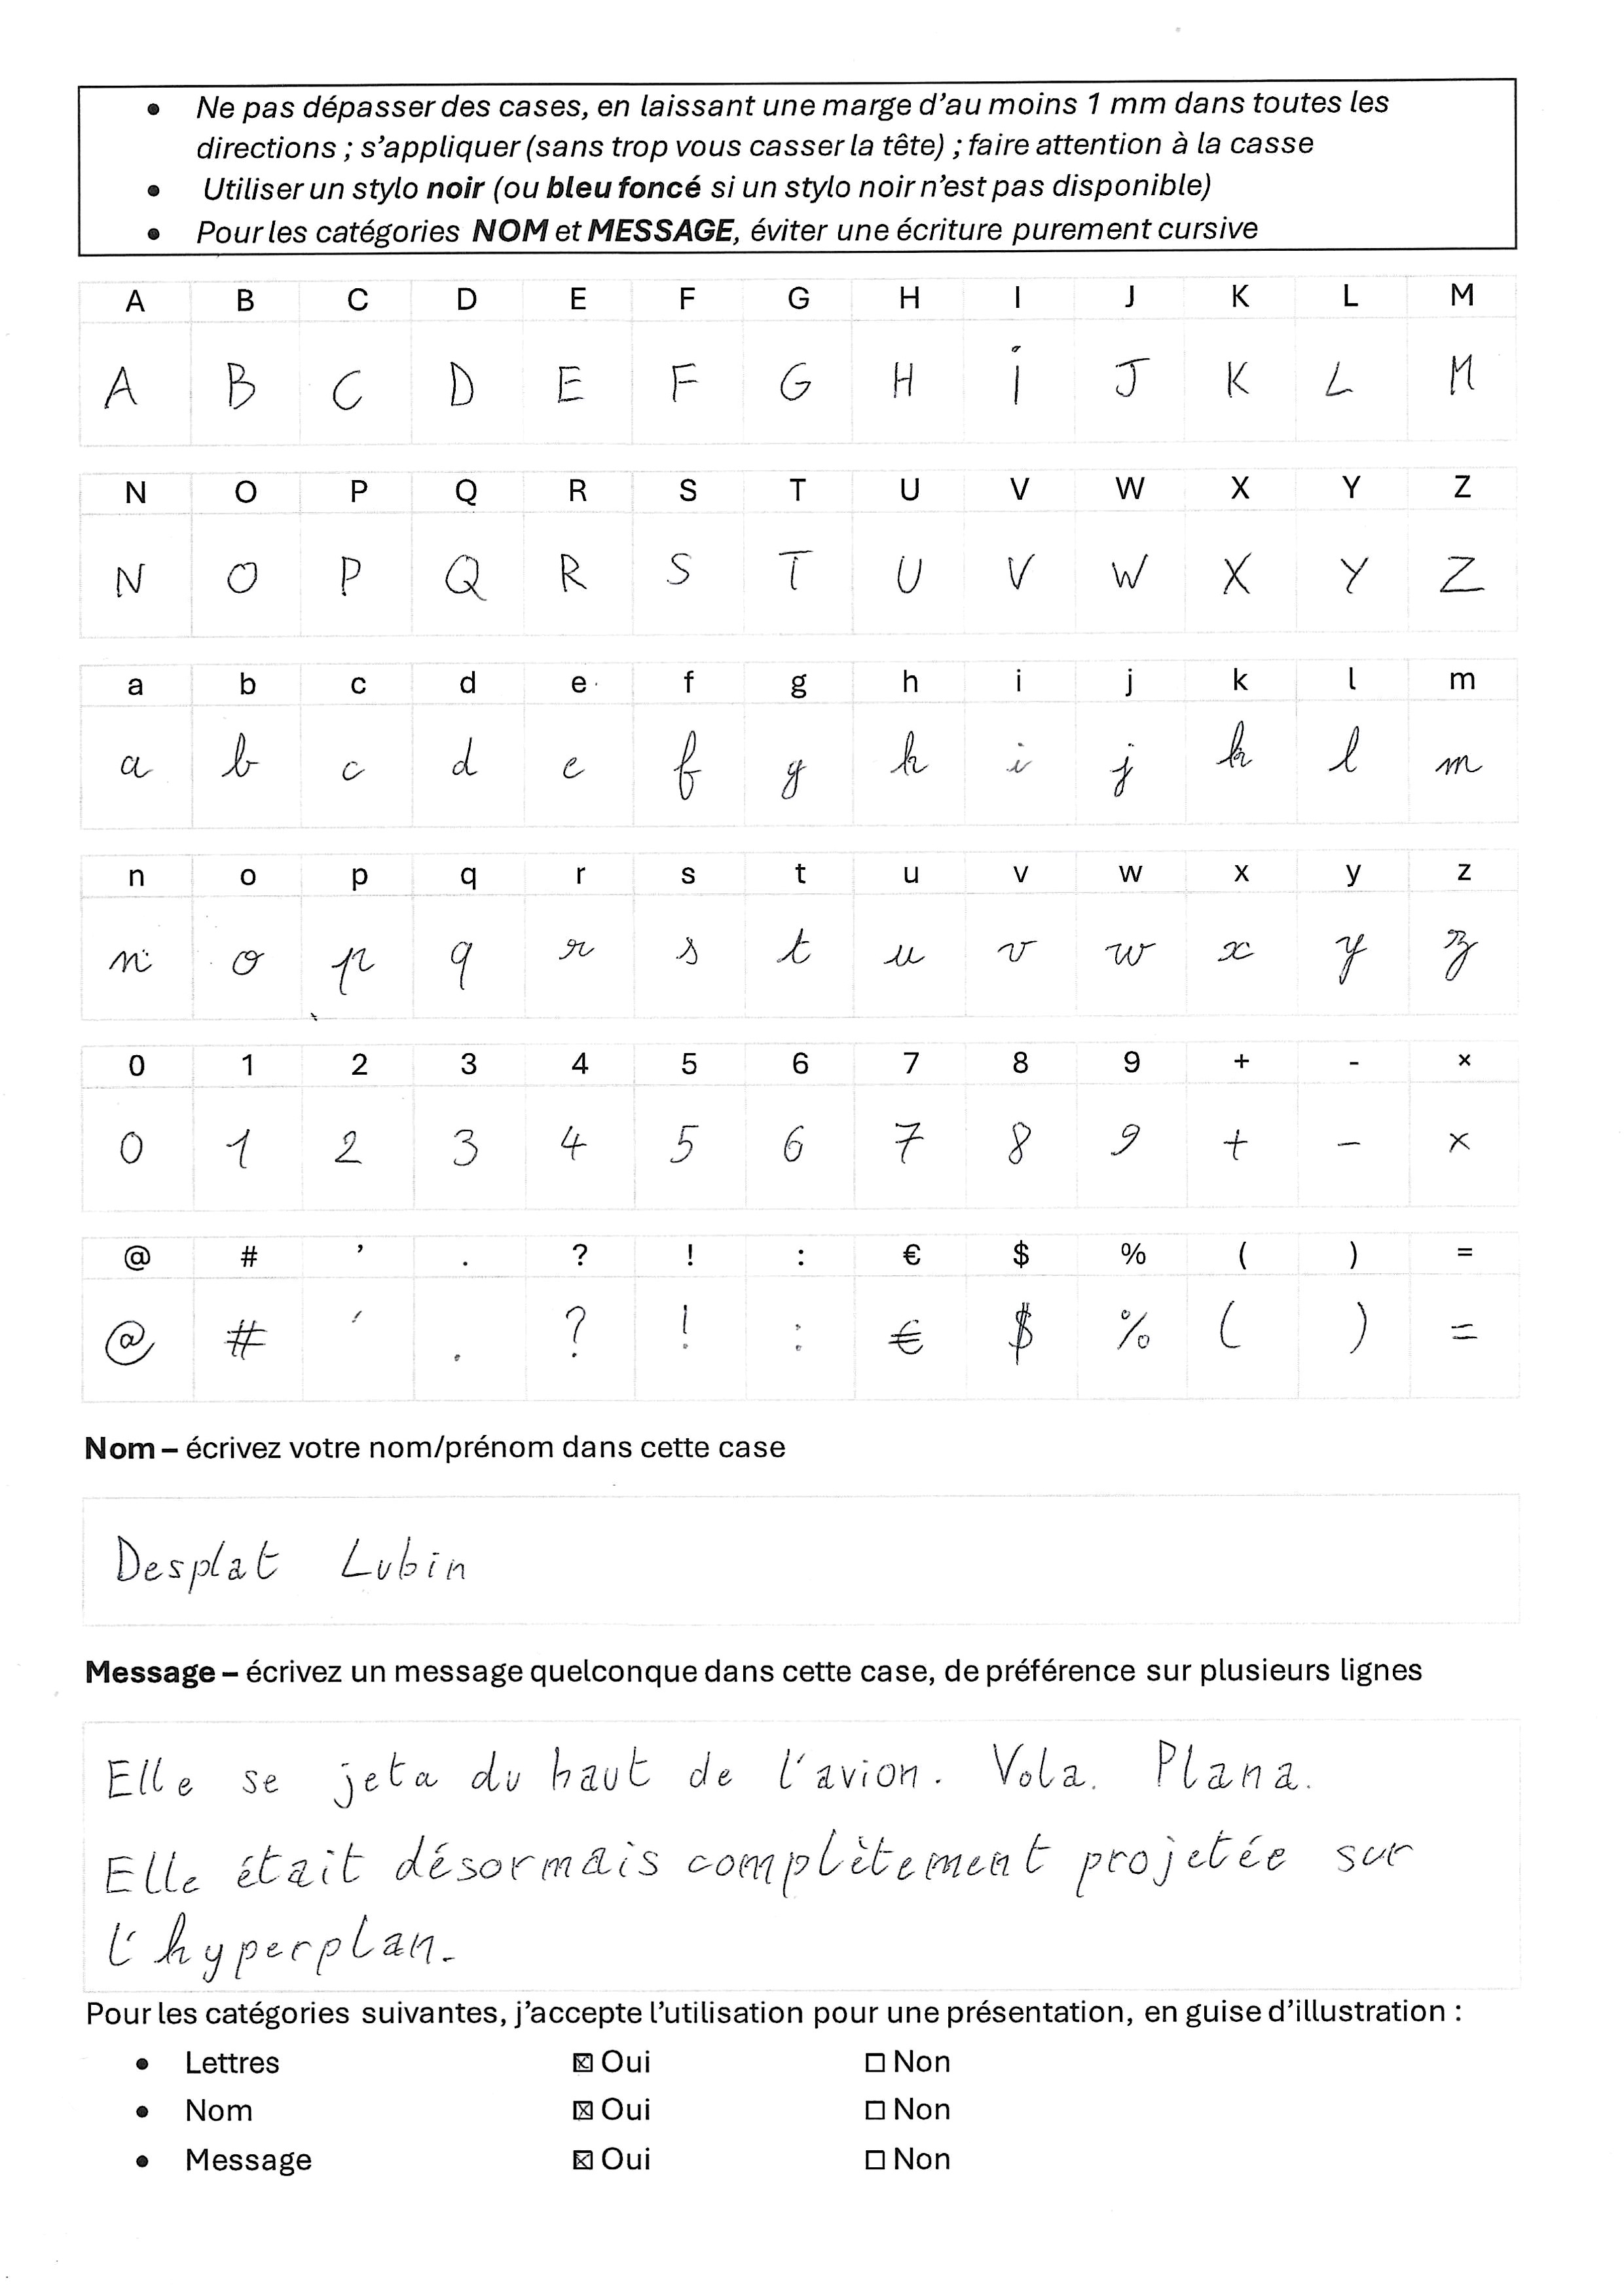 • Ne pas dépasser des cases, en laissant une marge d’au moins 1 mm dans toutes les
directions ; s’appliquer (sans trop vous casser la tête) ; faire attention à la casse
• Utiliser un stylo noir (ou bleu foncé si un stylo noir n’est pas disponible)
• Pour les catégories NOM et MESSAGE, éviter une écriture purement cursive
A B C D E F G H I J K L M
A B C D E F G H i J K L M
N O P Q R S T U V W X Y Z
N O P Q R S T U V W X Y Z
a b c d e f g h i j k l m
a b c d e f g h i j k l m
n o p q r s t u v w x y z
n o p q r s t u v w x y z
0 1 2 3 4 5 6 7 8 9 + - ×
0 1 2 3 4 5 6 7 8 9 + - ×
@ # ’ . ? ! : € $ % ( ) =
@ # ' . ? ! : € $ % ( ) =
Nom – écrivez votre nom/prénom dans cette case
Desplat Lubin
Message – écrivez un message quelconque dans cette case, de préférence sur plusieurs lignes
Elle se jeta du haut de l'avion. Vola. Plana.
Elle était désormais complètement projetée sur
l'hyperplan.
Pour les catégories suivantes, j’accepte l’utilisation pour une présentation, en guise d’illustration :
• Lettres ☒ Oui ☐ Non
• Nom ☒ Oui ☐ Non
• Message ☒ Oui ☐ Non